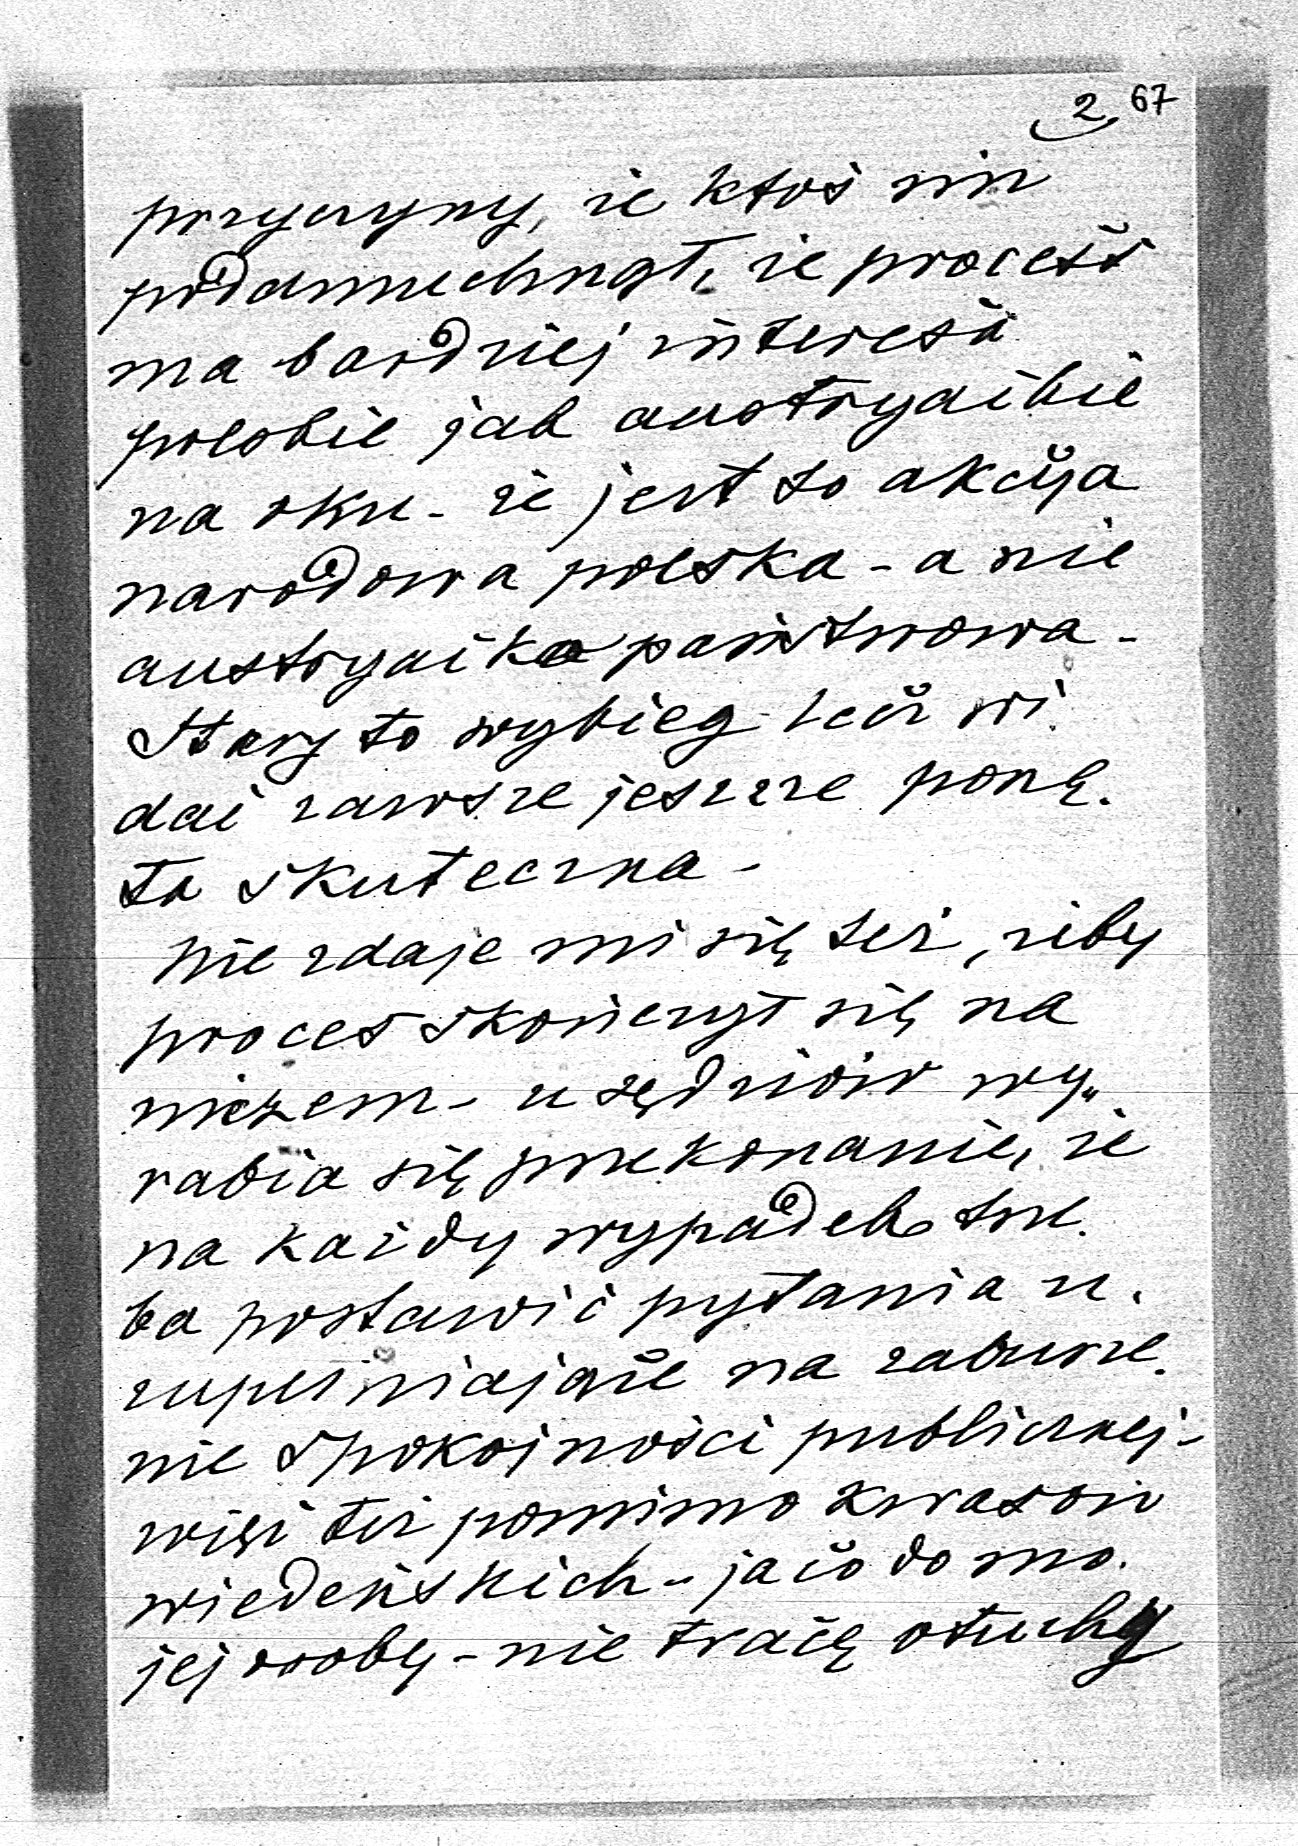 2 67
przyczyny, że ktoś nim
podmuchnął, że proces
ma bardziej interesa
polskie jak austryackie
na oku - że jest to akcya
narodowa polska - a nie
austryacka państwowa -
Stary to wybieg lecz wi
dać zawsze jeszcze ponę.
ta skuteczna -
Nie zdaje mi się też, żeby
proces skończył się na
niczem - u sędziów wy„
rabia się przekonanie, że
na każdy wypadek trze.
ba postawić pytania u.
zupełniające na zaburze.
nie spokojności publicznej -
więc też pomimo kwasów
wiedeńskich - ja co do mo.
jej osoby - nie tracę otuchy